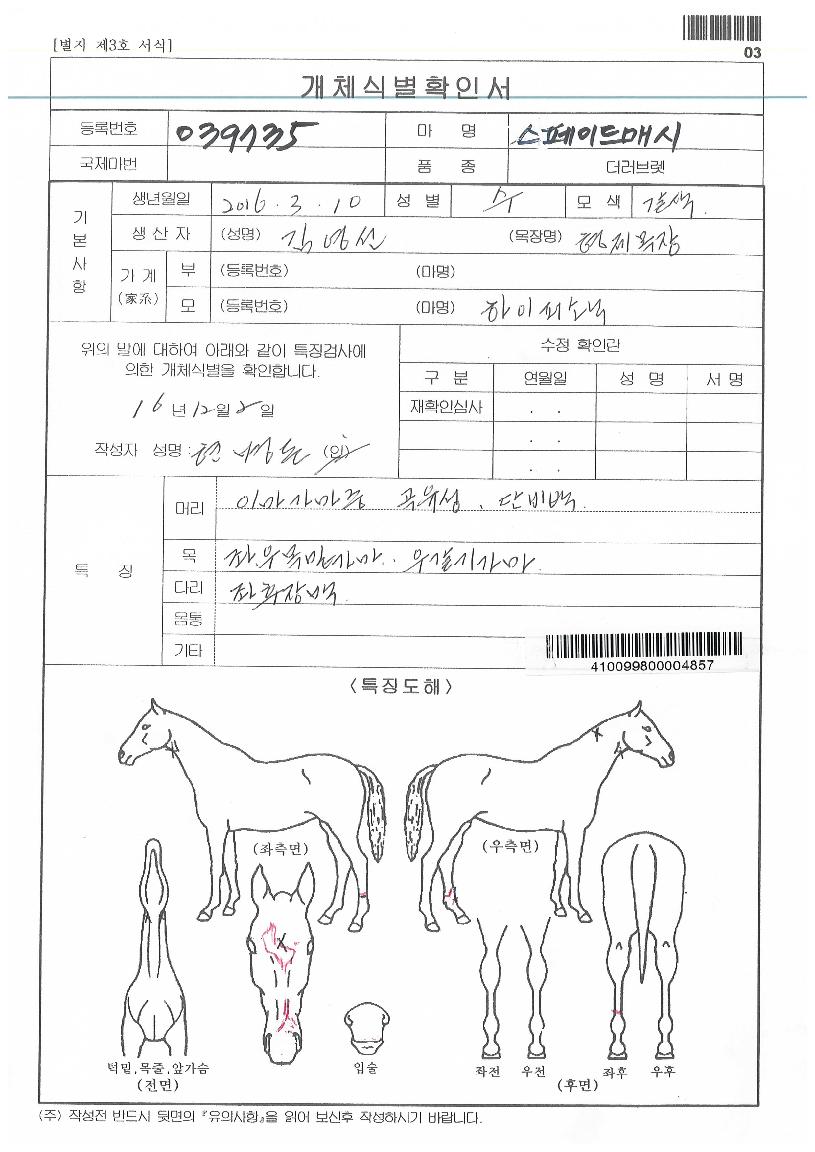 [별지 제3호 서식]
03
개체식별확인서
등록번호 039735 마 명 스페이드매시
국제마번 품 종 더러브렛
기본사항
생년월일 2016 . 3 . 10 성 별 수 모 색 갈색
생 산 자 (성명) 김영선 (목장명) 형제목장
가 계 (家系) 부 (등록번호) (마명)
모 (등록번호) (마명) 하이피소닉
위의 말에 대하여 아래와 같이 특징검사에
의한 개체식별을 확인합니다.
16년 12월 2일
작성자 성명 : (인)
수정 확인란
구 분 연월일 성 명 서 명
재확인심사 . .
. .
. .
특 징
머리 이마가마중 곡유성 . 단비백
목 좌.우목밑가마. 우갈기가마
다리 좌후장백
몸통
기타
410099800004857
<특징도해>
(좌측면)
(우측면)
턱밑,목줄,앞가슴
(전면)
입술
좌전 우전 좌후 우후
(후면)
(주) 작성전 반드시 뒷면의 『유의사항』을 읽어 보신후 작성하시기 바랍니다.